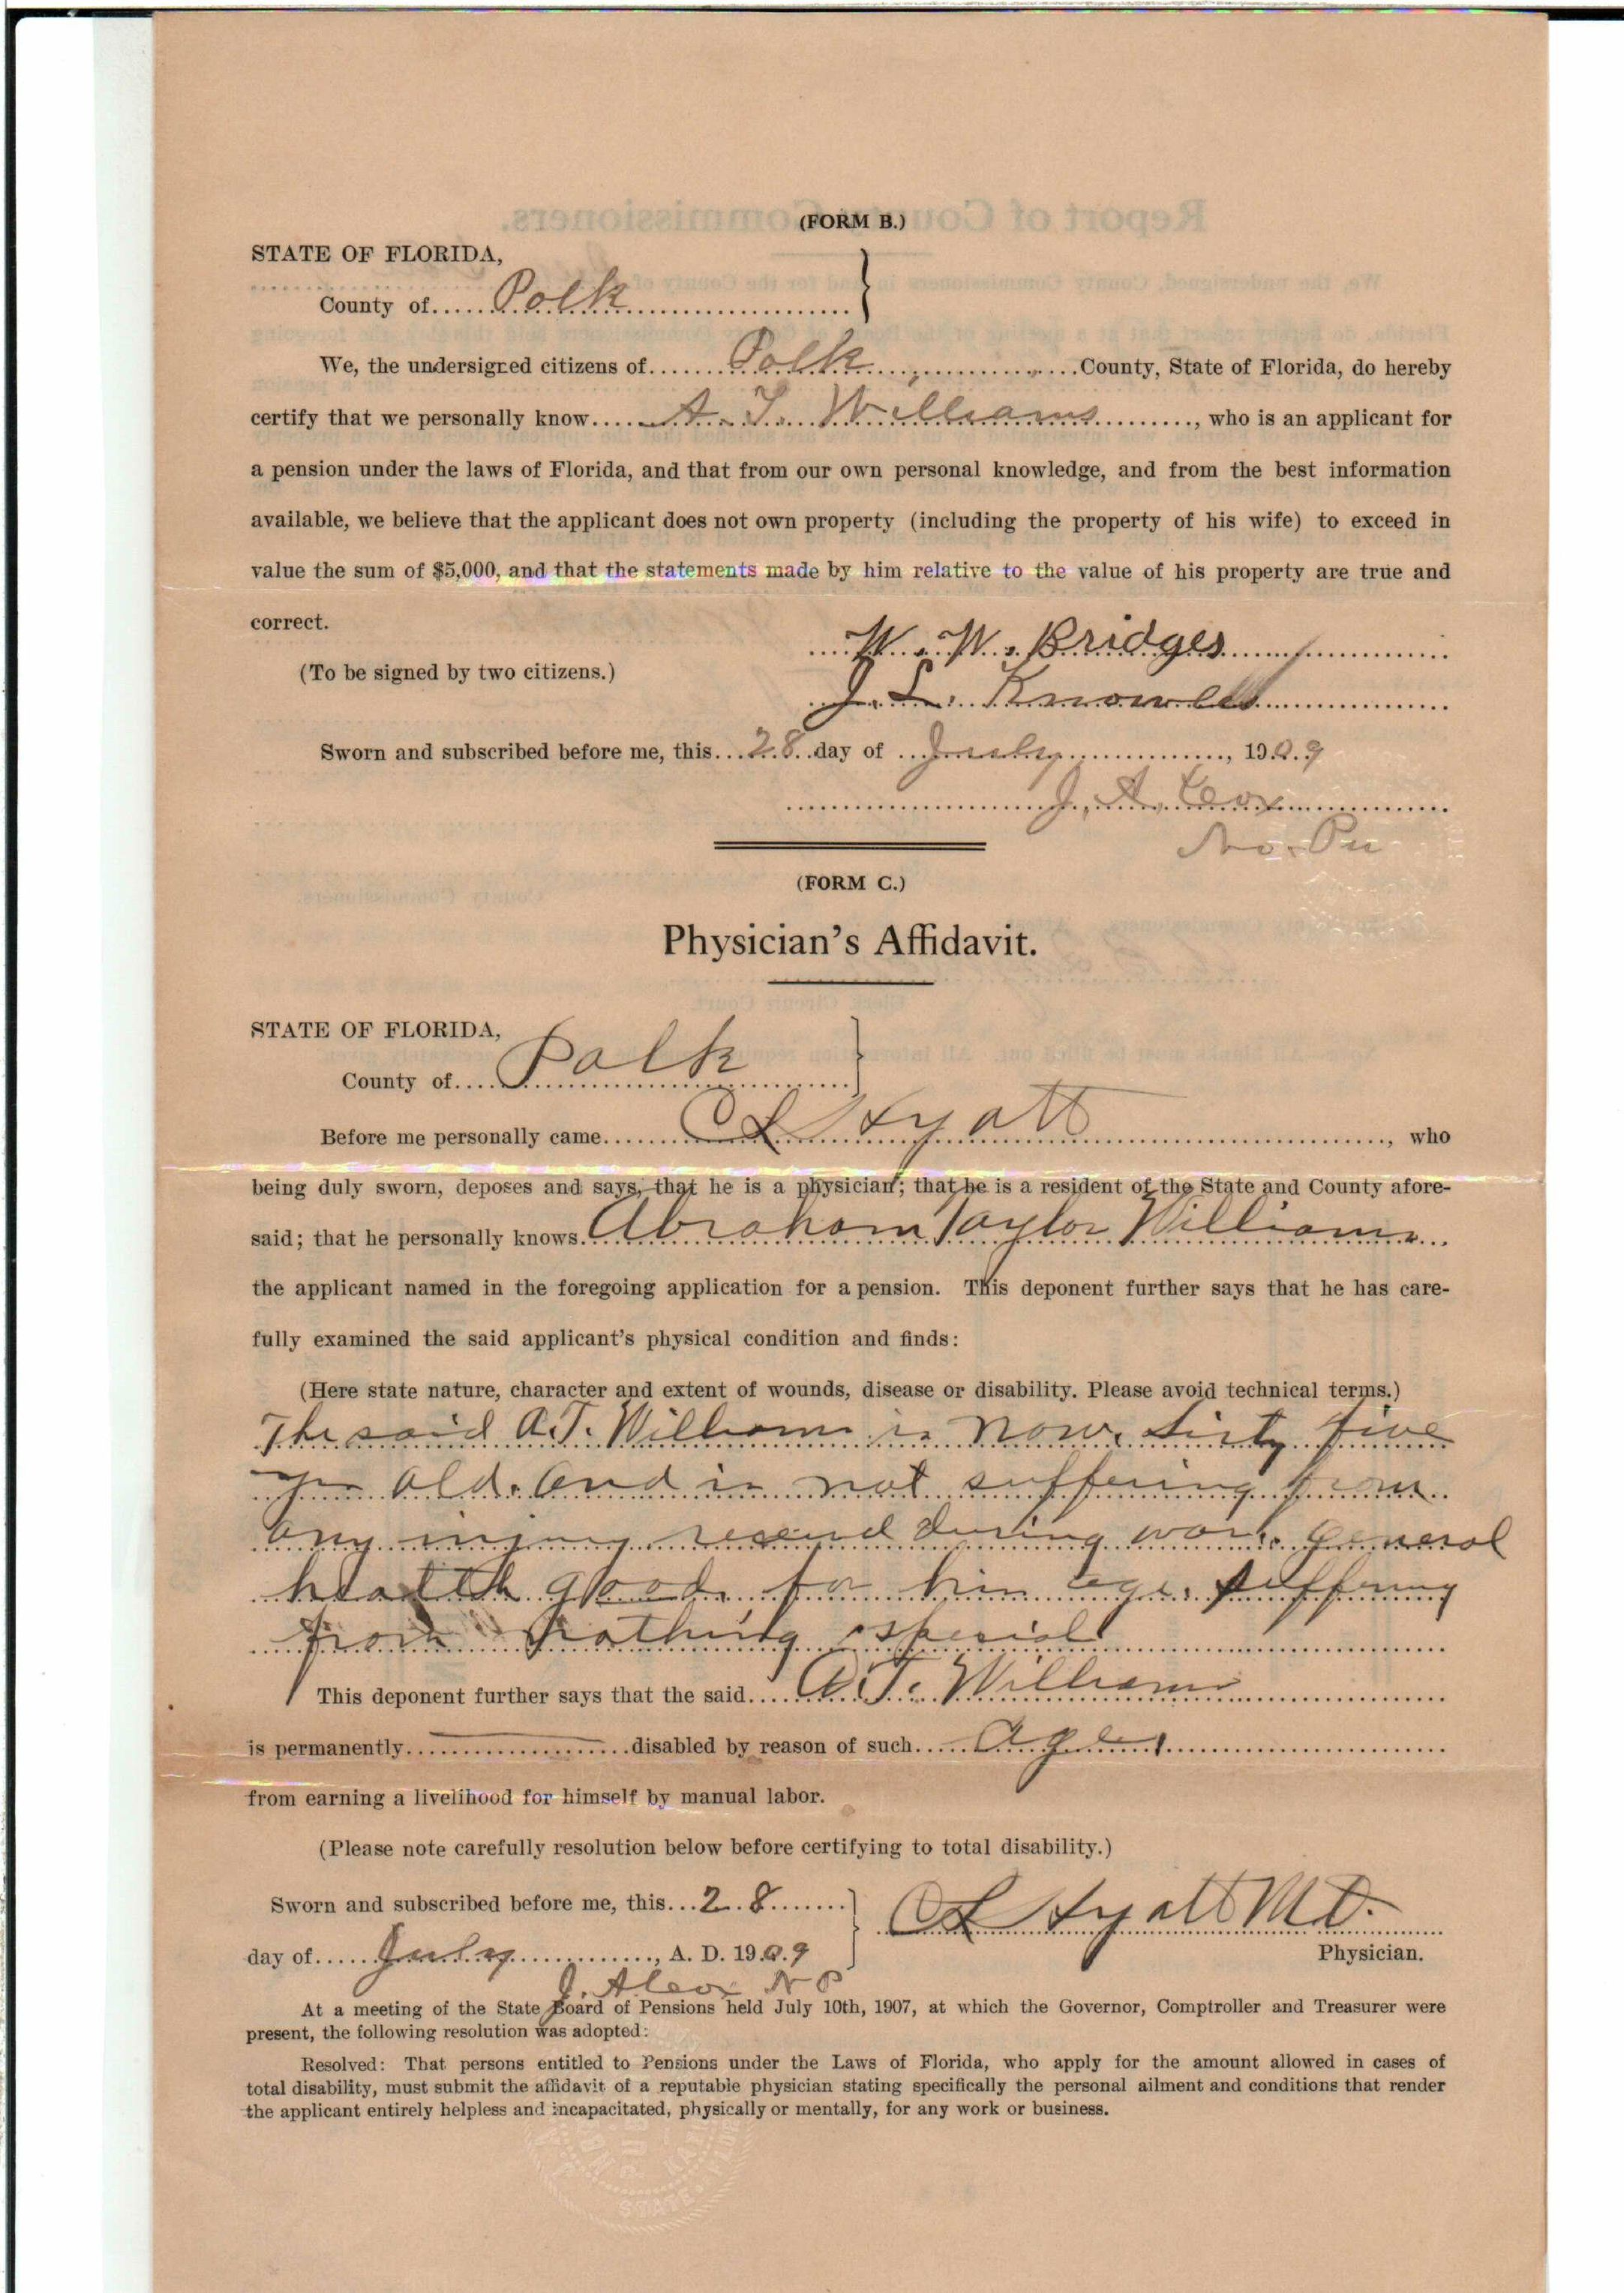 (FORM B.)
STATE OF FLORIDA,
County of Polk
We, the undersigned citizens of Polk County, State of Florida, do hereby
certify that we personally know A. T. Williams, who is an applicant for
a pension under the laws of Florida, and that from our own personal knowledge, and from the best information
available, we believe that the applicant does not own property (including the property of his wife) to exceed in
value the sum of $5,000, and that the statements made by him relative to the value of his property are true and
correct.
W. W. Bridges
(To be signed by two citizens.)
J. L. Knowles
Sworn and subscribed before me, this 28 day of July, 1909
J. A. Cox
No. Pu
(FORM C.)
Physician's Affidavit.
STATE OF FLORIDA,
County of Polk
Before me personally came C L Hyatt, who
being duly sworn, deposes and says, that he is a physician; that he is a resident of the State and County afore-
said; that he personally knows Abraham Taylor Williams
the applicant named in the foregoing application for a pension. This deponent further says that he has care-
fully examined the said applicant's physical condition and finds:
(Here state nature, character and extent of wounds, disease or disability. Please avoid technical terms.)
The said A.T. Williams is now sixty five
yrs old. and is not suffering from
any injury received during war. General
health good for his age. suffering
from nothing special
This deponent further says that the said A.T. Williams
is permanently disabled by reason of such age
from earning a livelihood for himself by manual labor.
(Please note carefully resolution below before certifying to total disability.)
Sworn and subscribed before me, this 28
C L Hyatt M.D.
day of July, A. D. 1909
Physician.
J. A Cox N P
At a meeting of the State Board of Pensions held July 10th, 1907, at which the Governor, Comptroller and Treasurer were
present, the following resolution was adopted:
Resolved: That persons entitled to Pensions under the Laws of Florida, who apply for the amount allowed in cases of
total disability, must submit the affidavit of a reputable physician stating specifically the personal ailment and conditions that render
the applicant entirely helpless and incapacitated, physically or mentally, for any work or business.